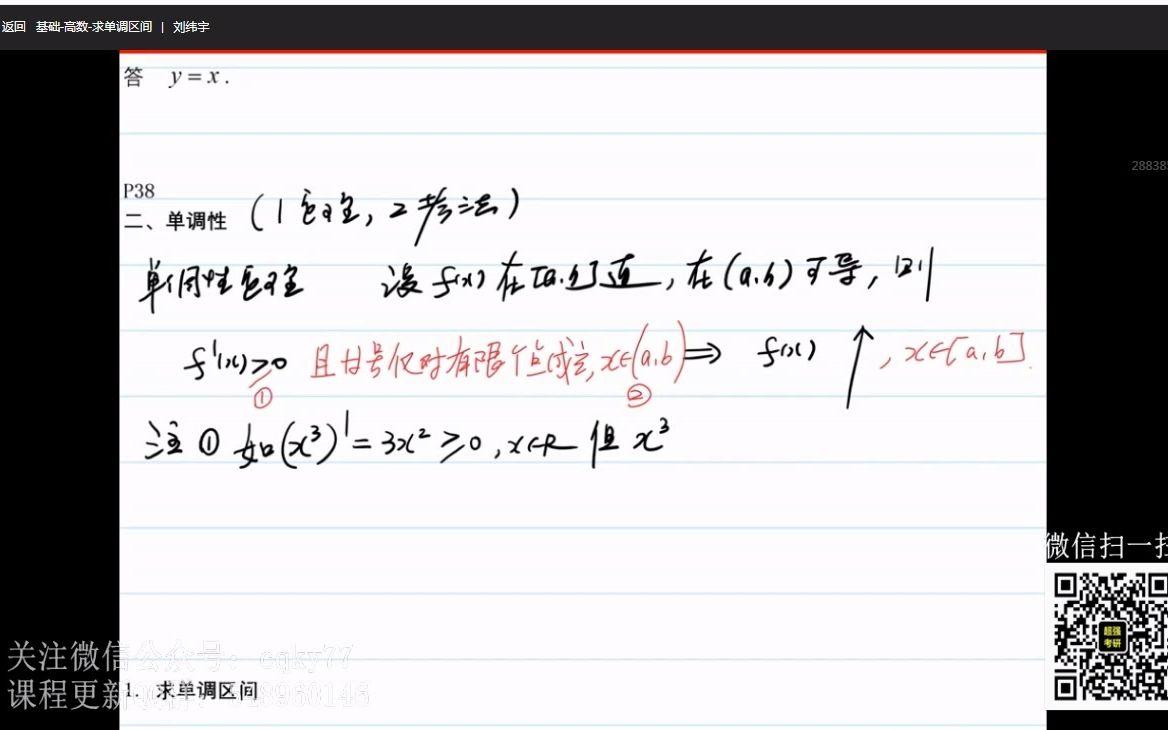 返回 基础-高数-求单调区间 | 刘纬宇
答 y = x .
288385
P38
二、单调性 (1定理, 2考法)
单调性定理 设 f(x) 在[a,b]连, 在(a,b)可导, 则
f'(x)≥0 且等号仅对有限个点成立, x∈(a,b) ⇒ f(x) ↑, x∈[a,b].
① ②
注 ① 如(x³)' = 3x² ≥0, x∈R 但 x³
微信扫一扫
超强
考研
关注微信公众号: cqky77
课程更新
1. 求单调区间